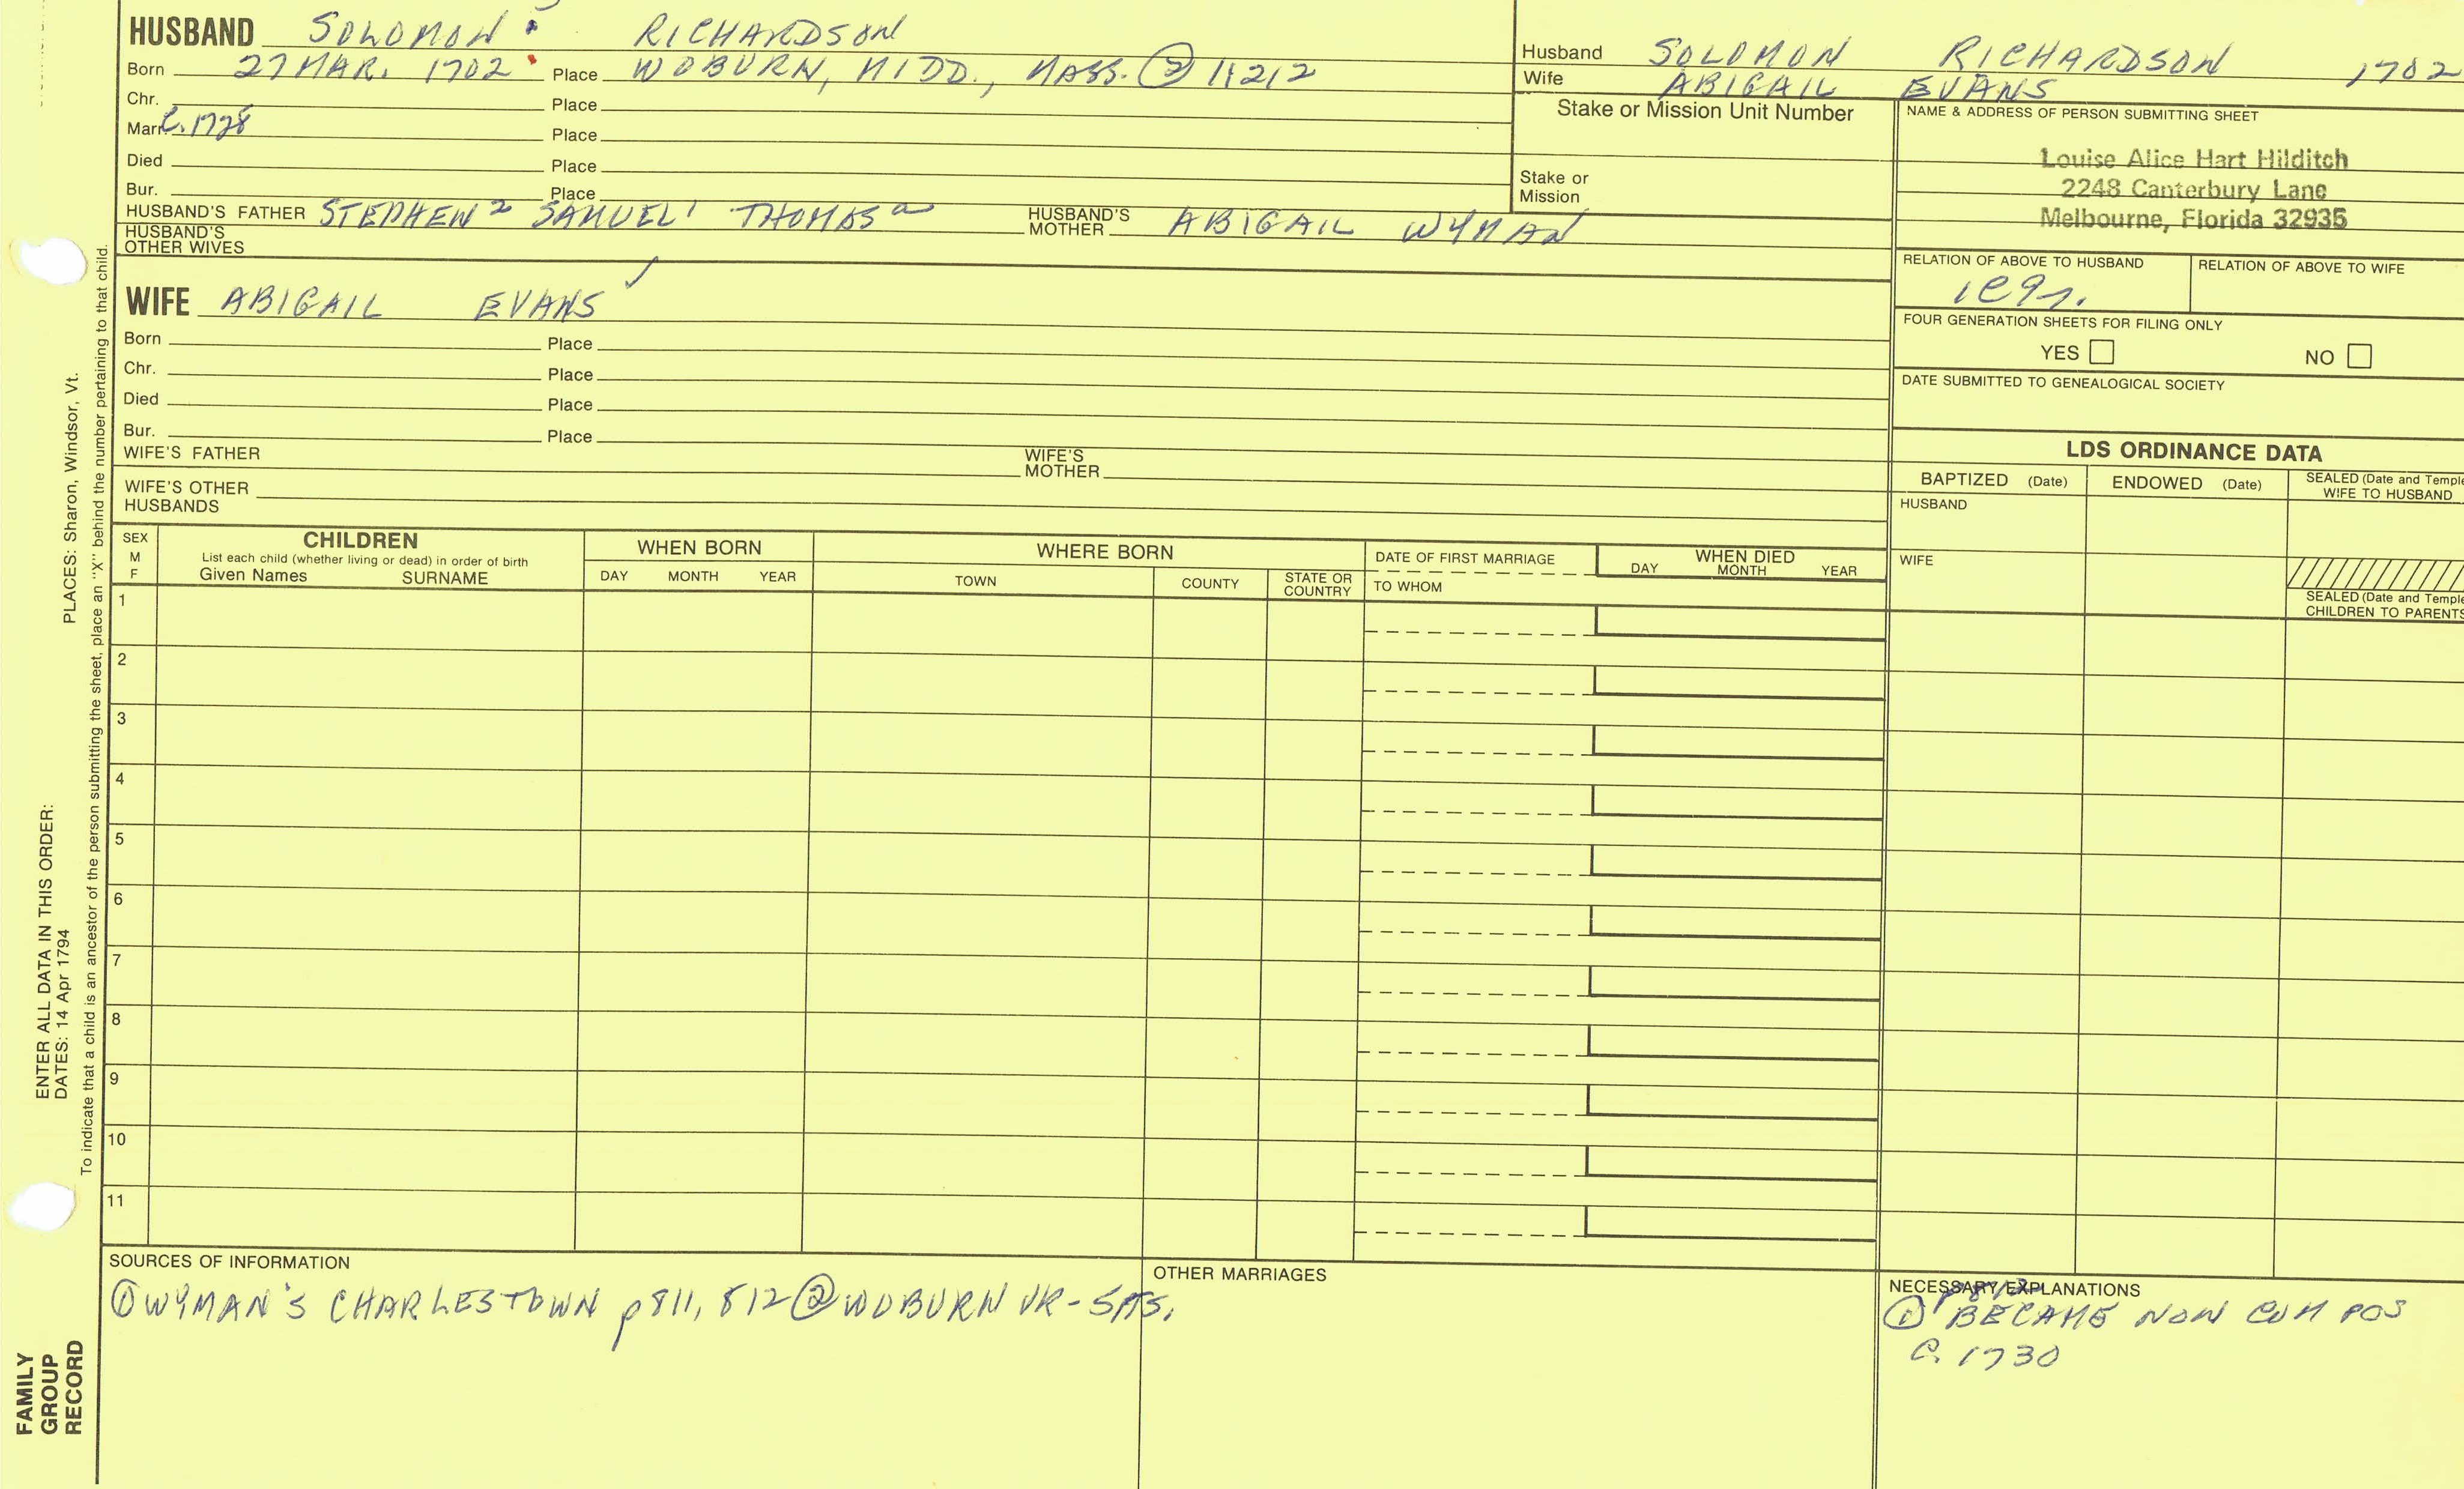 HUSBAND SOLOMON RICHARDSON
Born 27 MAR. 1702 Place WOBURN, MIDD., MASS. ② 11212
Chr. Place
Marr. C. 1728 Place
Died Place
Bur. Place
HUSBAND'S FATHER STEPHEN 2 SAMUEL 1 THOMAS a HUSBAND'S MOTHER ABIGAIL WYMAN
HUSBAND'S OTHER WIVES
WIFE ABIGAIL EVANS ✓
Born Place
Chr. Place
Died Place
Bur. Place
WIFE'S FATHER WIFE'S MOTHER
WIFE'S OTHER HUSBANDS
Husband SOLOMON RICHARDSON 1702
Wife ABIGAIL EVANS
Stake or Mission Unit Number
Stake or Mission
NAME & ADDRESS OF PERSON SUBMITTING SHEET
Louise Alice Hart Hilditch
2248 Canterbury Lane
Melbourne, Florida 32935
RELATION OF ABOVE TO HUSBAND RELATION OF ABOVE TO WIFE
FOUR GENERATION SHEETS FOR FILING ONLY
YES NO
DATE SUBMITTED TO GENEALOGICAL SOCIETY
LDS ORDINANCE DATA
BAPTIZED (Date) ENDOWED (Date) SEALED (Date and Temple
WIFE TO HUSBAND
HUSBAND
WIFE
SEALED (Date and Temple
CHILDREN TO PARENTS
SEX
M
F
CHILDREN
List each child (whether living or dead) in order of birth
Given Names SURNAME
WHEN BORN
DAY MONTH YEAR
WHERE BORN
TOWN COUNTY STATE OR COUNTRY
DATE OF FIRST MARRIAGE
TO WHOM
WHEN DIED
DAY MONTH YEAR
1
2
3
4
5
6
7
8
9
10
11
SOURCES OF INFORMATION
① WYMAN'S CHARLESTOWN p 811, 812 ② WOBURN VR-
OTHER MARRIAGES
NECESSARY EXPLANATIONS
① BECAME NON COM POS
C. 1730
PLACES: Sharon, Windsor, Vt.
ENTER ALL DATA IN THIS ORDER:
DATES: 14 Apr 1794
To indicate that a child is an ancestor of the person submitting the sheet, place an "X" behind the number pertaining to that child.
FAMILY
GROUP
RECORD